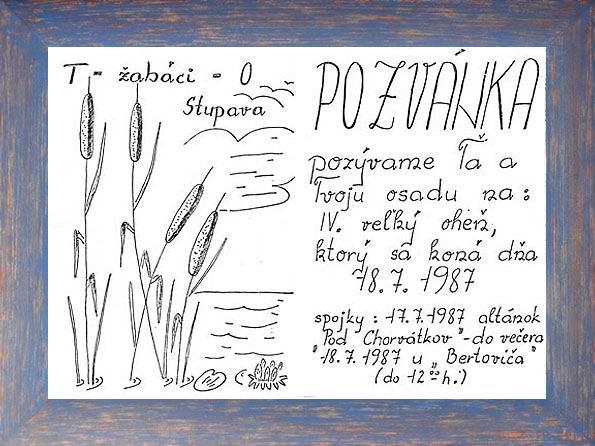 T - žabáci - O
Stupava
POZVÁNKA
pozývame Ťa a
Tvoju osadu na:
IV. veľký oheň,
ktorý sa koná dňa
18.7. 1987
spojky : 17.7.1987 altánok
"Pod Chorvátkov" - do večera
18.7.1987 u „Bertoviča"
(do 12 00 h.)